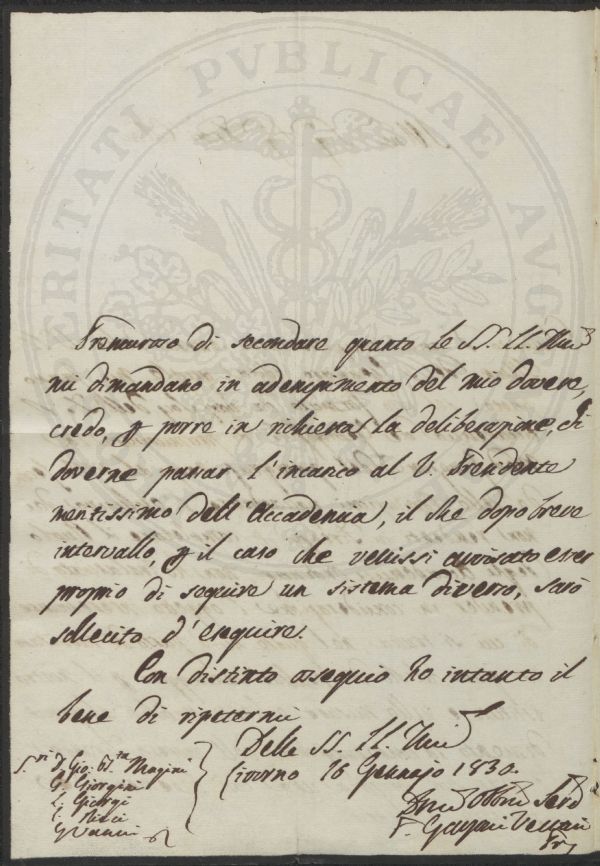 VERITATI PVBLICAE AVG
Premuroso di secondare quanto le SS. LL. Ill.
mi dimandano in adempimento del mio dovere,
credo, p porre in richiesta la deliberazione, di
doverne passar l'incarico al V. Presidente
meritissimo dell'Accademia, il che dopo breve
intervallo, p il caso che venissi avvisato esser
proprio di seguire un sistema diverso, sarò
sollecito d'eseguire.
Con distinto ossequio ho intanto il
bene di ripetermi
Delle SS. LL. Ill.
Livorno 16 Gennajo 1830.
S.ri D. Gio: B.ta Magini
G. Giorgini
L. Giorgi
Ricci
G. Vannini
Dmo Obbmo Serv